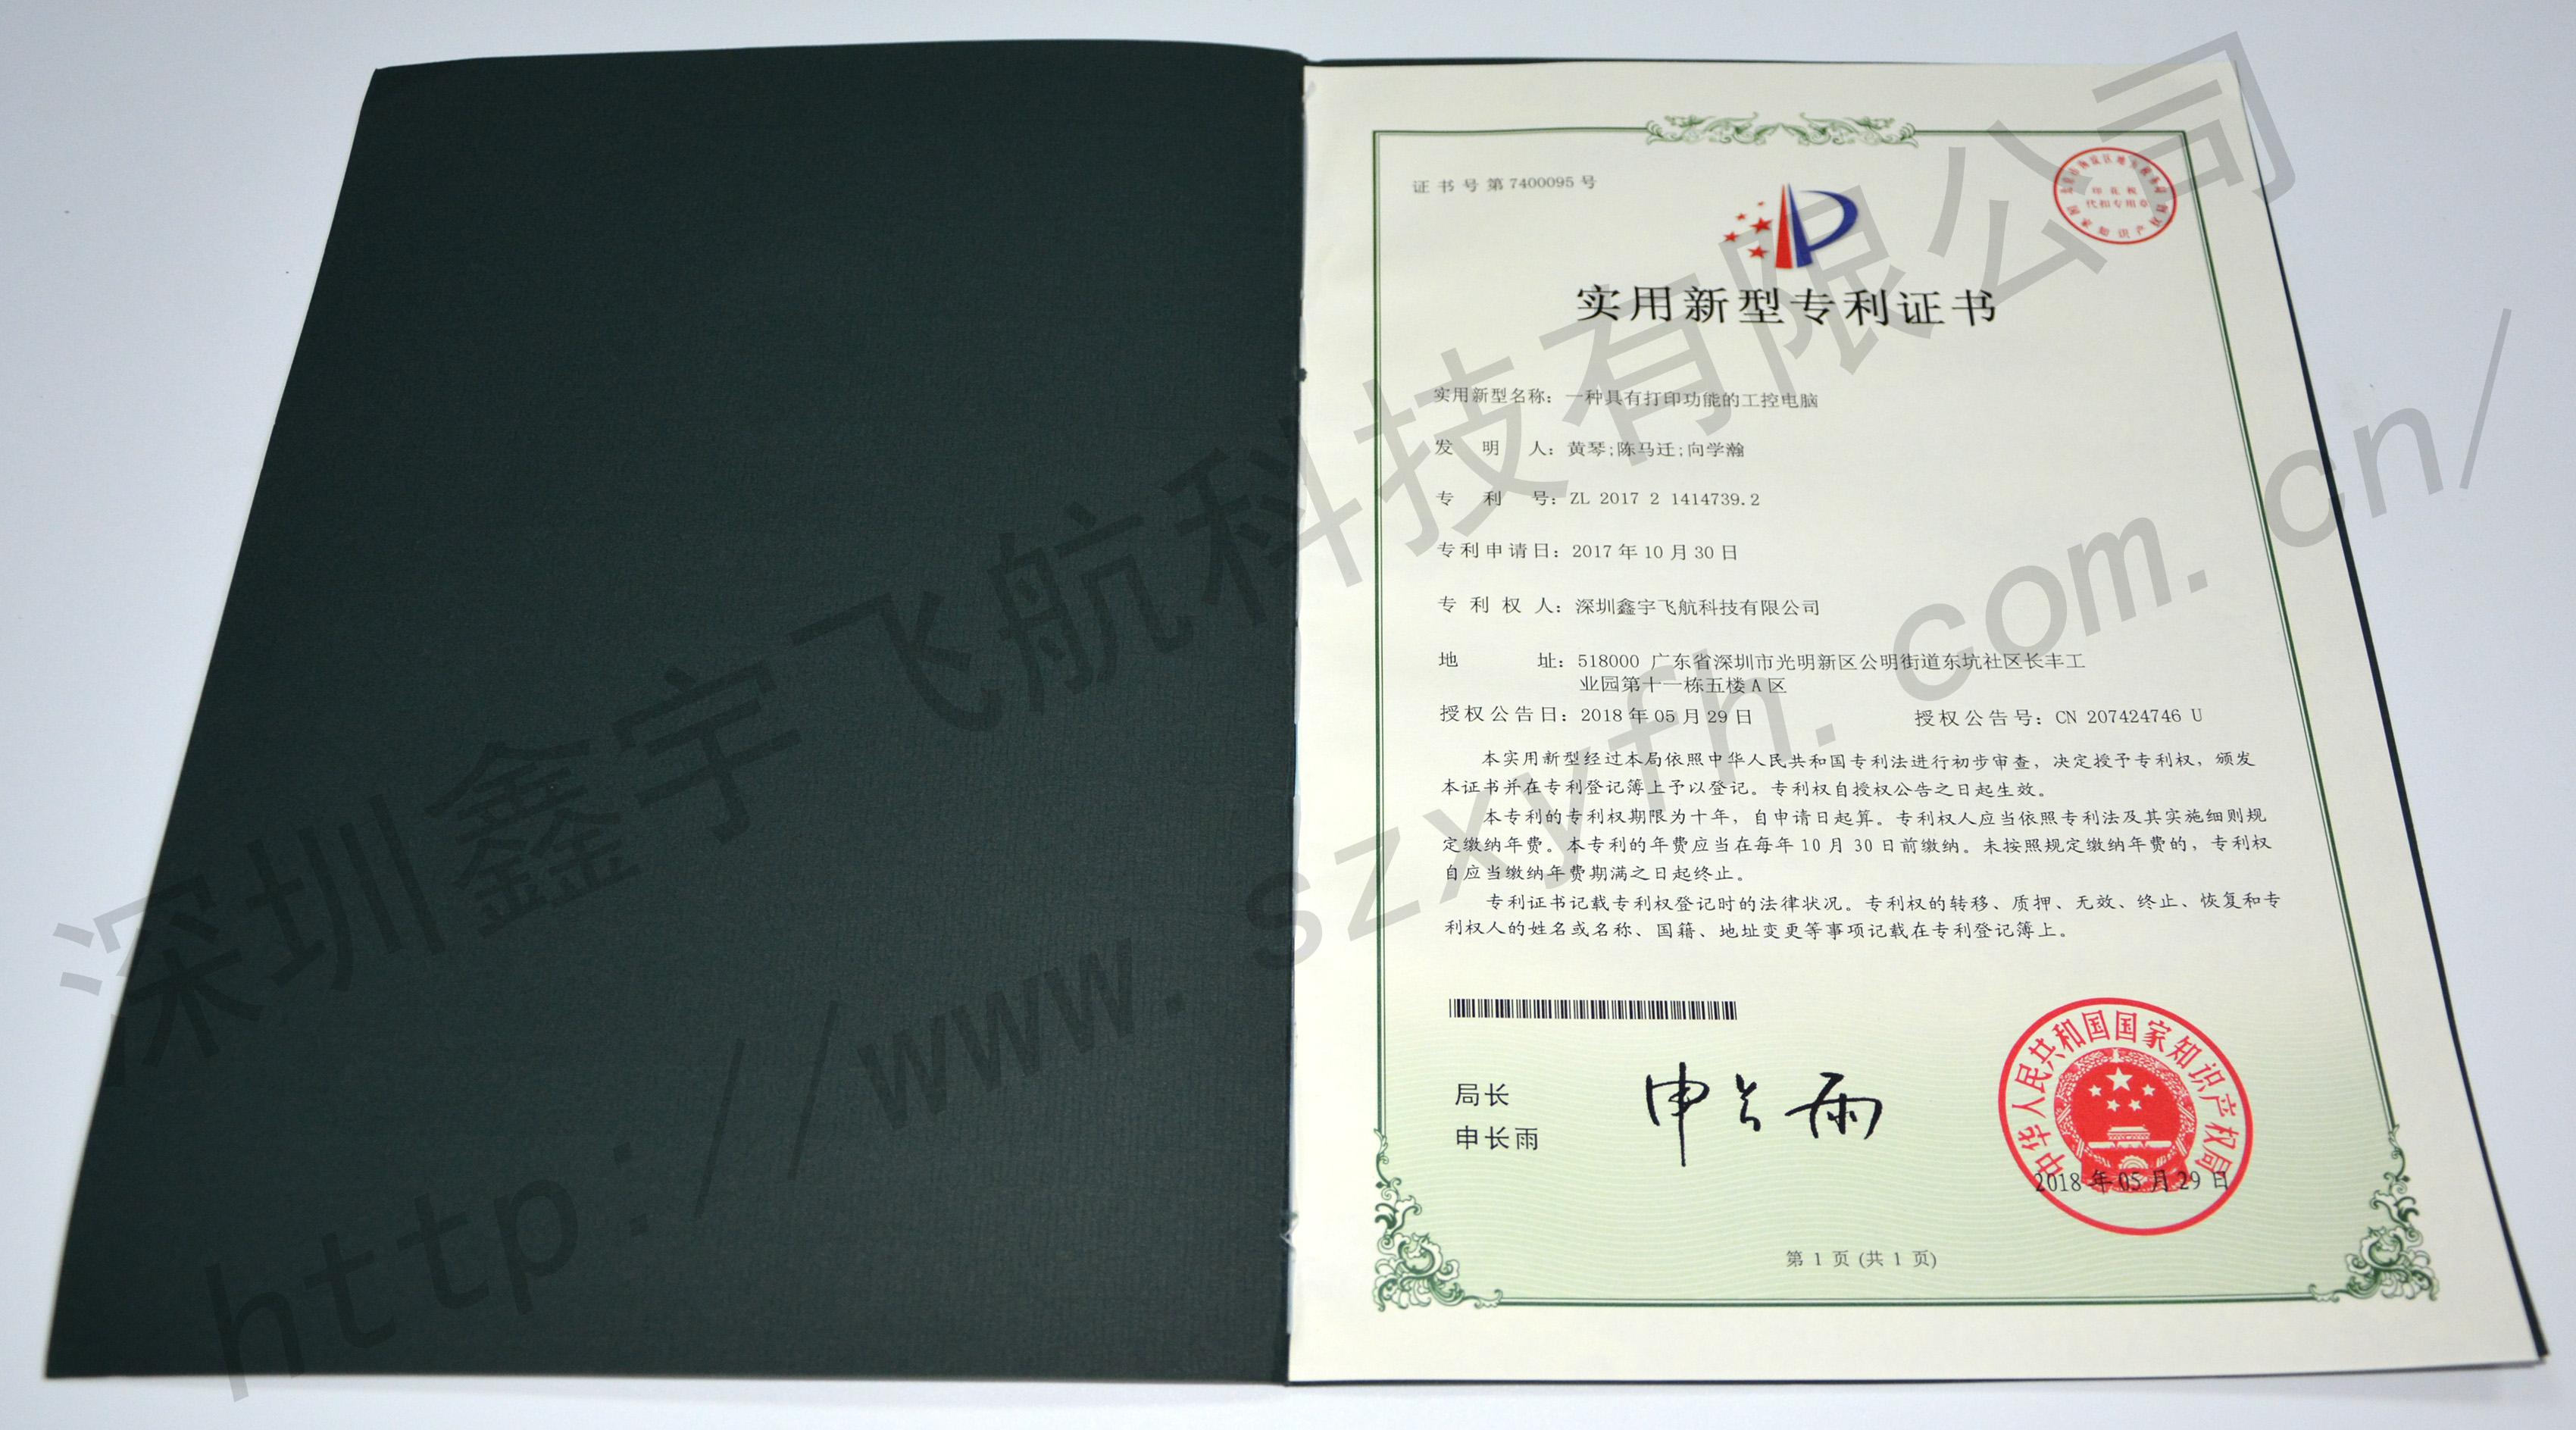 证书号第7400095号
印花税
代扣专用章
国家知识产权局
实用新型专利证书
实用新型名称：一种具有打印功能的工控电脑
发明人：黄琴;陈马迁;向学瀚
专利号：ZL 2017 2 1414739.2
专利申请日：2017年10月30日
专利权人：深圳鑫宇飞航科技有限公司
地址：518000 广东省深圳市光明新区公明街道东坑社区长丰工
业园第十一栋五楼A区
授权公告日：2018年05月29日 授权公告号：CN 207424746 U
本实用新型经过本局依照中华人民共和国专利法进行初步审查，决定授予专利权，颁发
本证书并在专利登记簿上予以登记。专利权自授权公告之日起生效。
本专利的专利权期限为十年，自申请日起算。专利权人应当依照专利法及其实施细则规
定缴纳年费。本专利的年费应当在每年10月30日前缴纳。未按照规定缴纳年费的，专利权
自应当缴纳年费期满之日起终止。
专利证书记载专利权登记时的法律状况。专利权的转移、质押、无效、终止、恢复和专
利权人的姓名或名称、国籍、地址变更等事项记载在专利登记簿上。
局长
申长雨
申长雨
中华人民共和国国家知识产权局
2018年05月29日
第 1 页 (共 1 页)
深圳鑫宇飞航科技有限公司
http://www.szxyfh.com.cn/